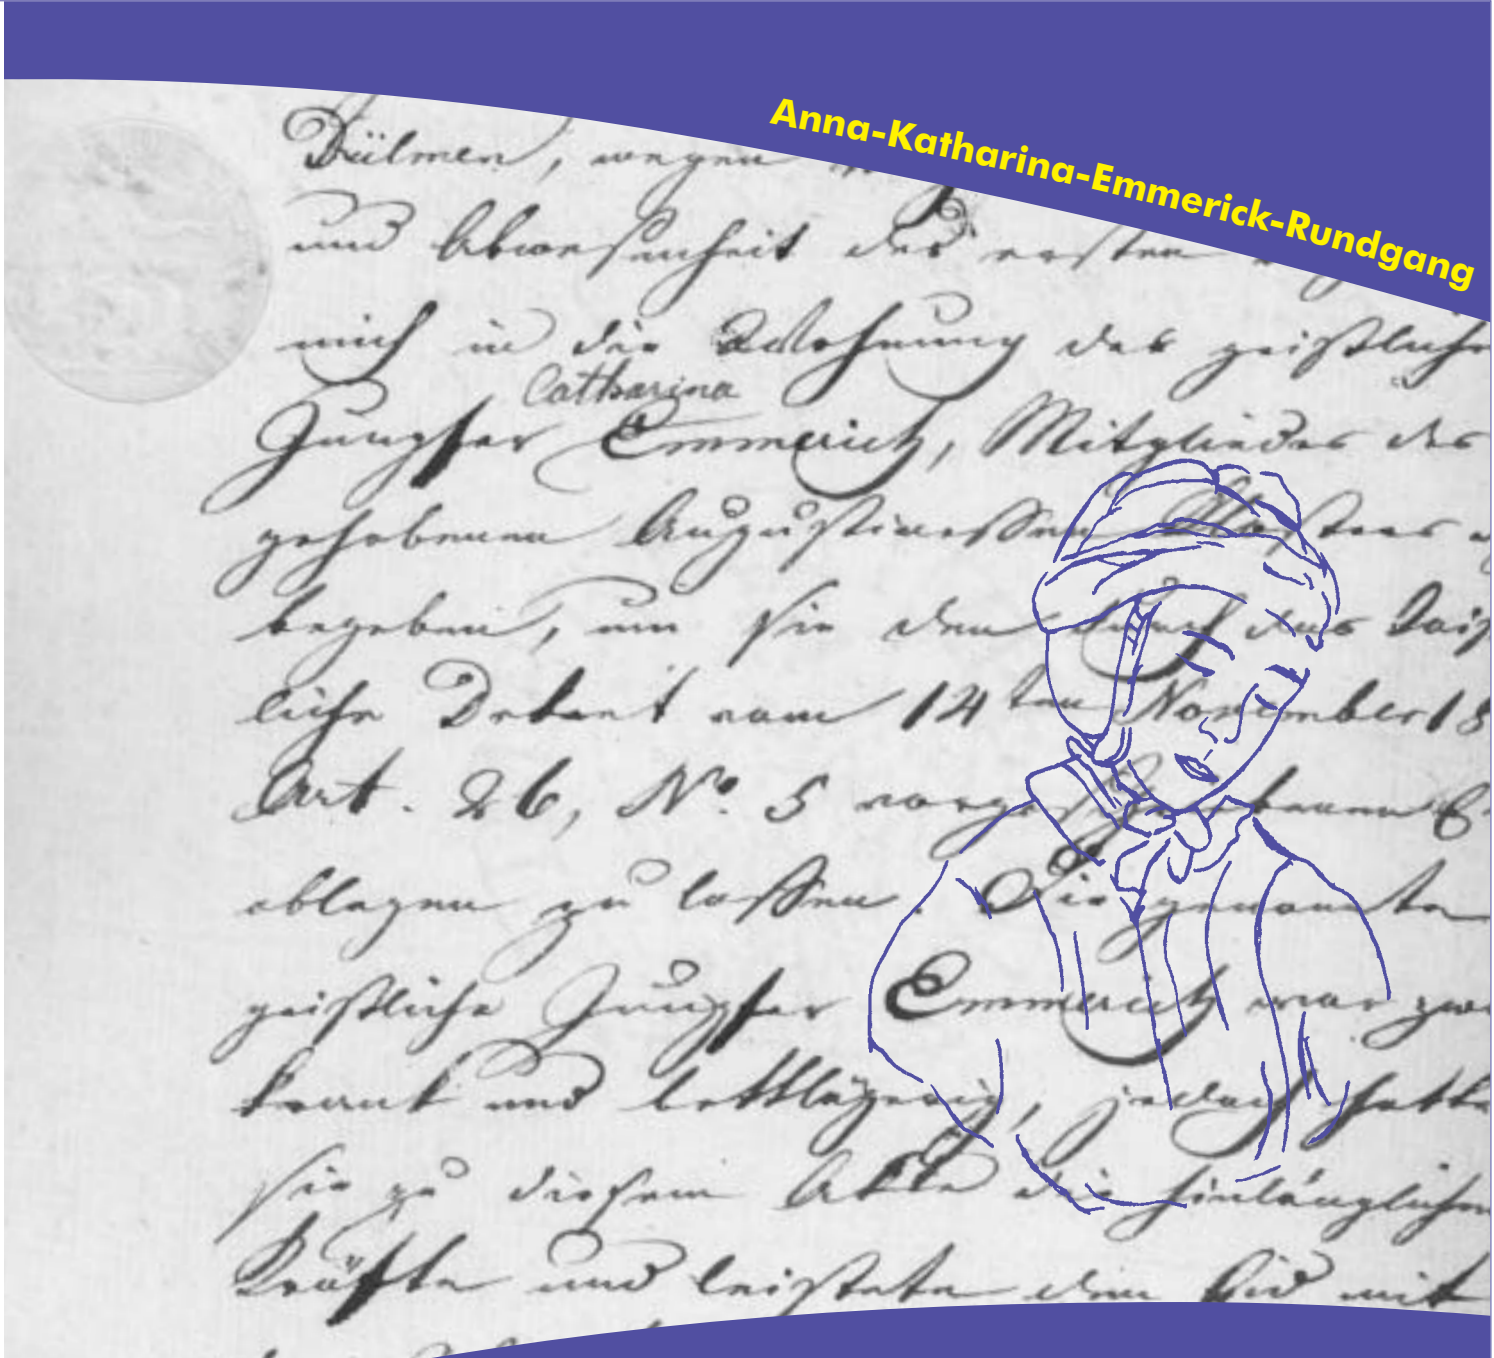 Anna-Katharina-Emmerick-Rundgang
Dülmen, wegen
und Abwesenheit des ersten
mich in die Wohnung des geistlichen
Catharina
Jungfer Emmerich, Mitgliedes des
gehobenen Augustinessen Klosters
begeben, um sie den durch das Kais
liche Dekret vom 14ten November 18
Art. 26, No. 5 vorgeschriebenen E
ablegen zu lassen. Die genannte
geistliche Jungfer Emmerich war zwa
krank und bettlägerig, jedoch hatte
sie zu diesem Akte die hinlänglichen
Kräfte und leistete den Eid mit